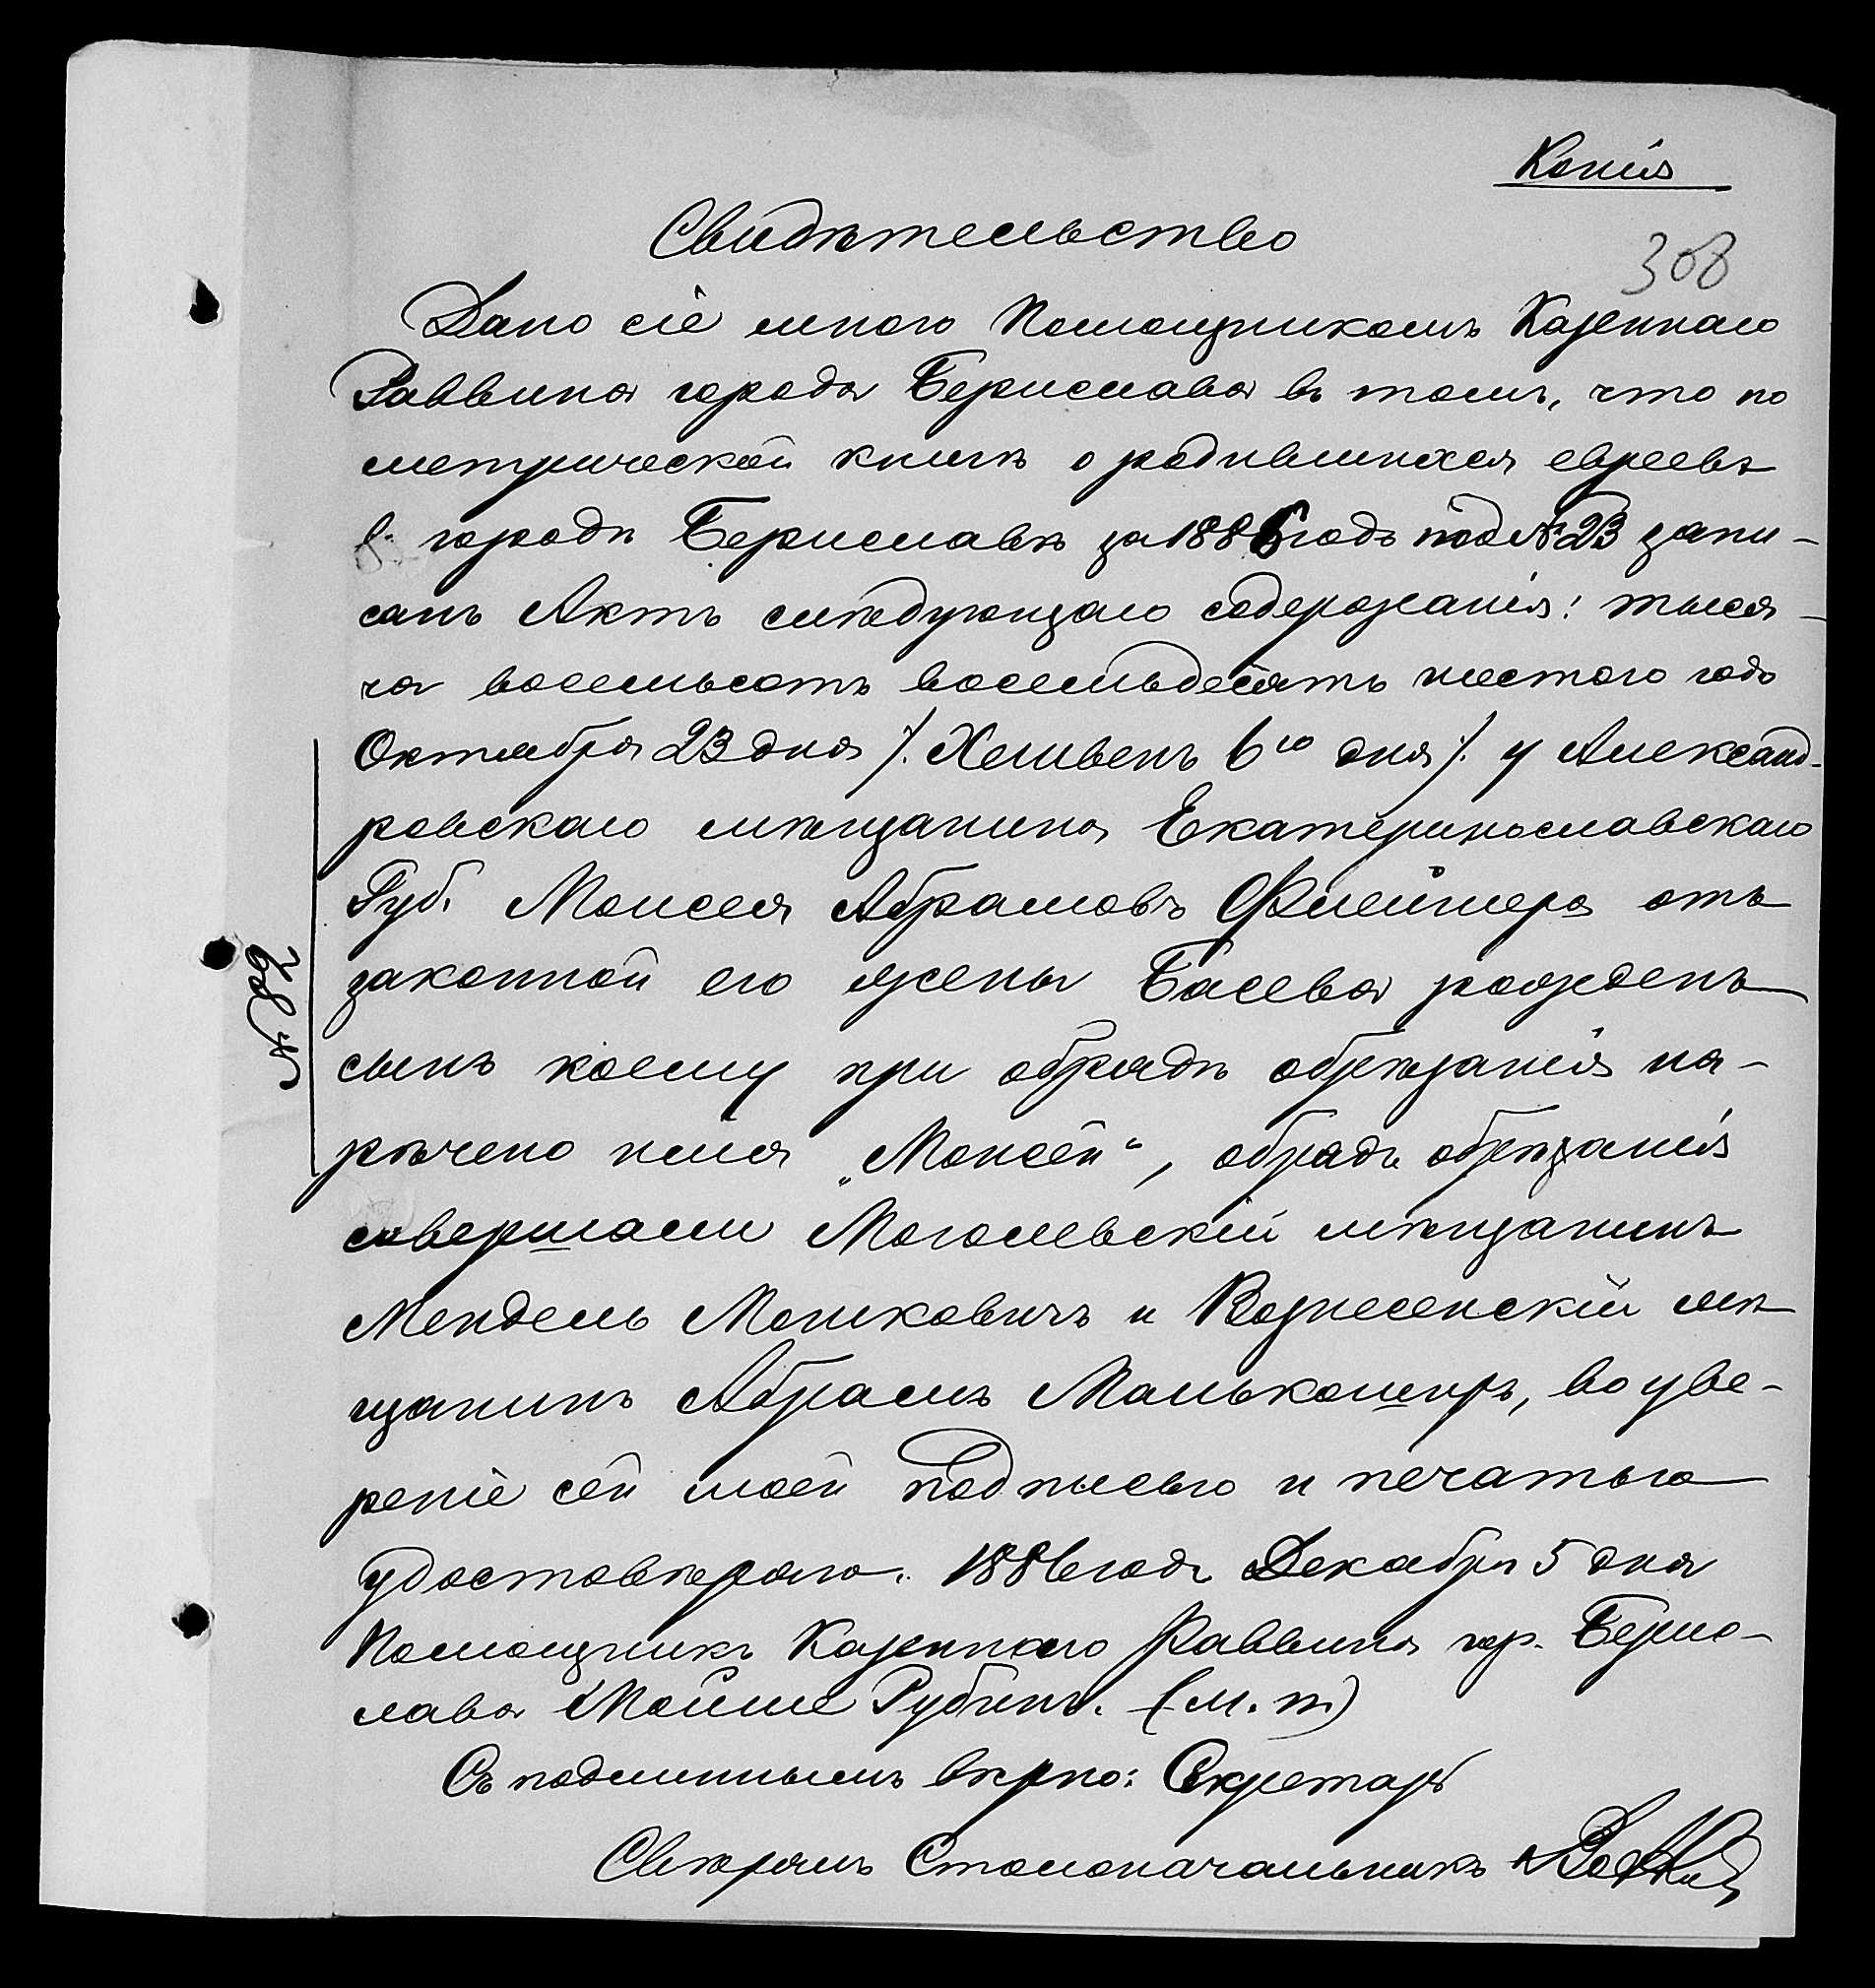 Копія
Свидѣтельство
308
Дано сіе мною Помощникомъ Казеннаго
Раввина города Берислава въ томъ, что по
метрической книгѣ о родившихся евреевъ
в. городѣ Бериславѣ за 1886 годъ под № 23 запи-
санъ Актъ слѣдующаго содержанія: тыся-
ча восемьсотъ восемьдесятъ шестого годо
Октября 23 дня /. Хешвенъ 6го дня /. у Александ-
ровскаго мѣщанина Екатеринославскаго
Губ. Моисея Абрамовъ Флейшера отъ
законной его жены Басева рожденъ
сынъ коему при обрядѣ обрѣзанія на-
рѣчено имя „Моисей“, обрядъ обрѣзанія
совершали Моголевскій мѣщанинъ
Мендель Мошковичъ и Вознесенскій мѣ
щанинъ Абрамъ Манькоширъ, во уве-
реніе сей моей подписью и печатью
удостовѣряю. 1886 года Декабря 5 дня
Помощникъ Казеннаго Раввина гор. Берис-
лава Мойше Рубинъ. (м. п)
Съ подлиннымъ вѣрно: Секретарь
Свѣрялъ Столоначальникъ
№ 682